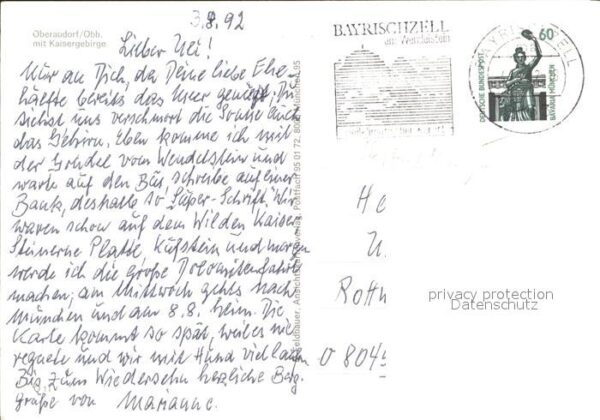 Oberaudorf/Obb.
mit Kaisergebirge
3.8.92
Lieber Uli!
Nur an Dich, da Deine liebe Ehe-
hälfte bereits das Meer genießt. Du
siehst uns verschmort die Sonne auch
das Gehirn. Eben komme ich mit
der Gondel vom Wendelstein und
warte auf den Bus, schreibe auf einer
Bank, deshalb so Super-Schrift. Wir
waren schon auf dem Wilden Kaiser,
Steinerne Platte, Kufstein und morgen
werde ich die große Dolomitenfahrt
machen, am Mittwoch gehts nach
München und am 8.8. heim. Die
Karte kommt so spät, weil es nie
regnete und wir mit Hund viel laufen
Bis zum Wiedersehn herzliche Berg-
grüße von Marianne.
Postfach 95 01 72, 8000 München 95
BAYRISCHZELL
am Wendelstein
BAYRISCHZELL
60
DEUTSCHE BUNDESPOST
BAVARIA MÜNCHEN
He
U.
Roth
O 804
privacy protection
Datenschutz